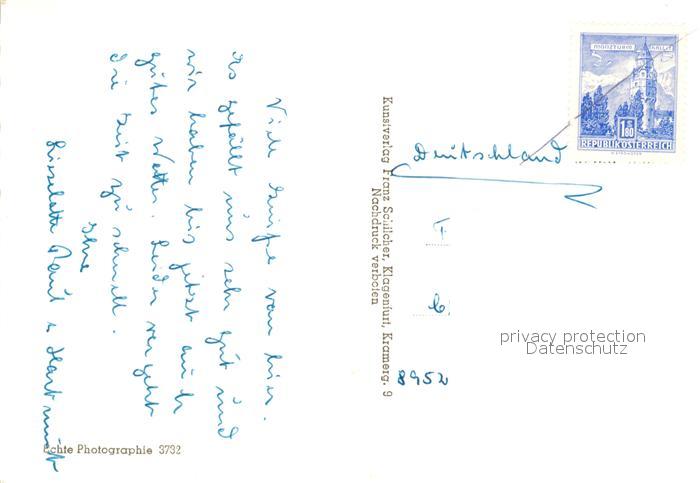 Viele Grüße von hier.
Es gefällt uns sehr gut und
wir haben bis jetzt auch
gutes Wetter. Leider vergeht
die Zeit zu schnell.
Ihre
Liselotte & Hartmut
Echte Photographie 3732
Kunstverlag Franz Schilcher, Klagenfurt, Kramerg. 9
Nachdruck verboten
MÜNZTURM HALL I.T.
1.80
REPUBLIK ÖSTERREICH
Deutschland
F
8952
privacy protection
Datenschutz